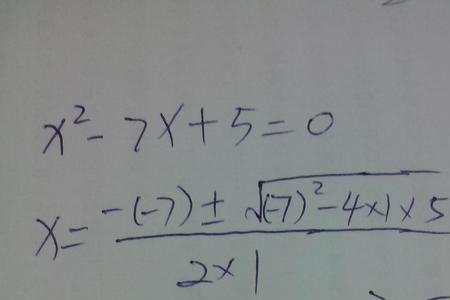 x² - 7x + 5 = 0
x = (-(-7) ± √((-7)² - 4×1×5)) / (2×1)